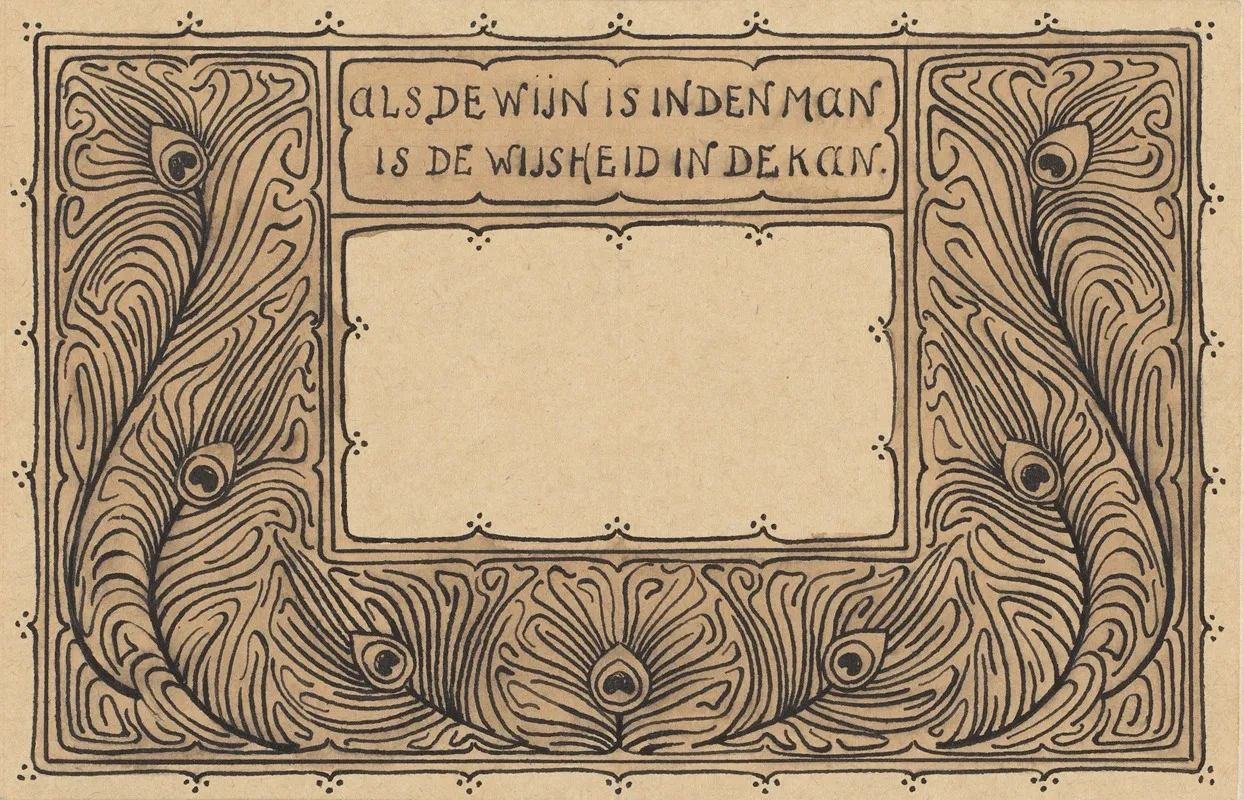 ALS DE WIJN IS IN DEN MAN
IS DE WIJSHEID IN DE KAN.